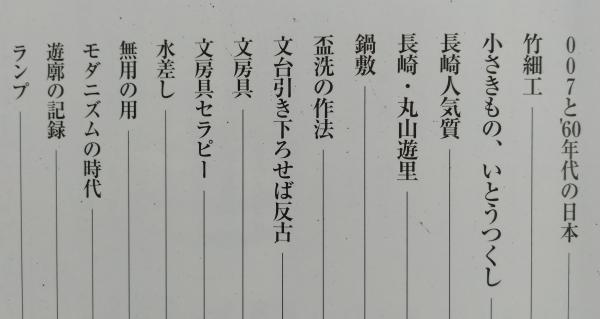 007と'60年代の日本
竹細工
小さきもの、いとうつくし
長崎人気質
長崎・丸山遊里
鍋敷
盃洗の作法
文台引き下ろせば反古
文房具
文房具セラピー
水差し
無用の用
モダニズムの時代
遊廓の記録
ランプ